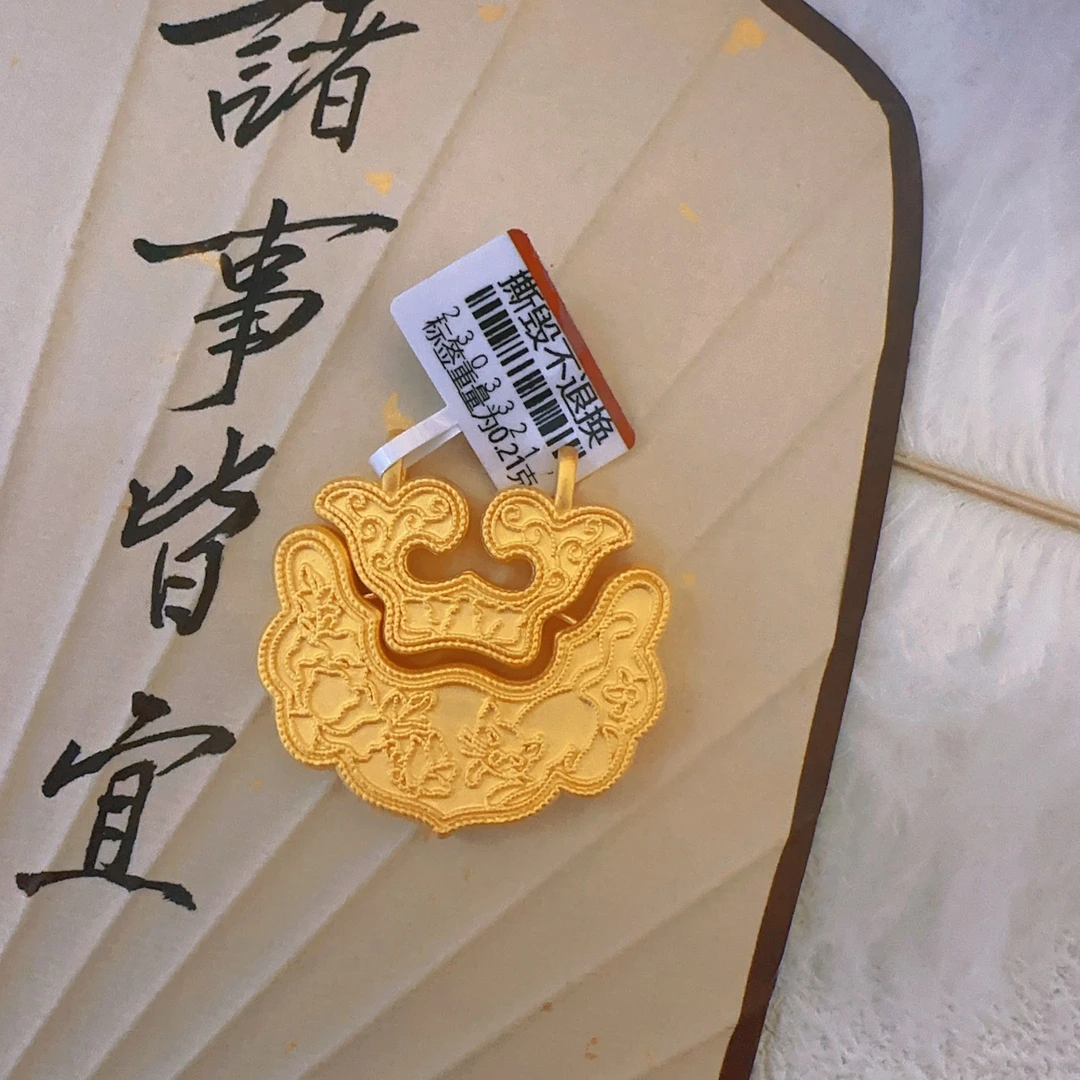 諸事皆宜
撕毁不退换
2303321
标签重量为0.21克